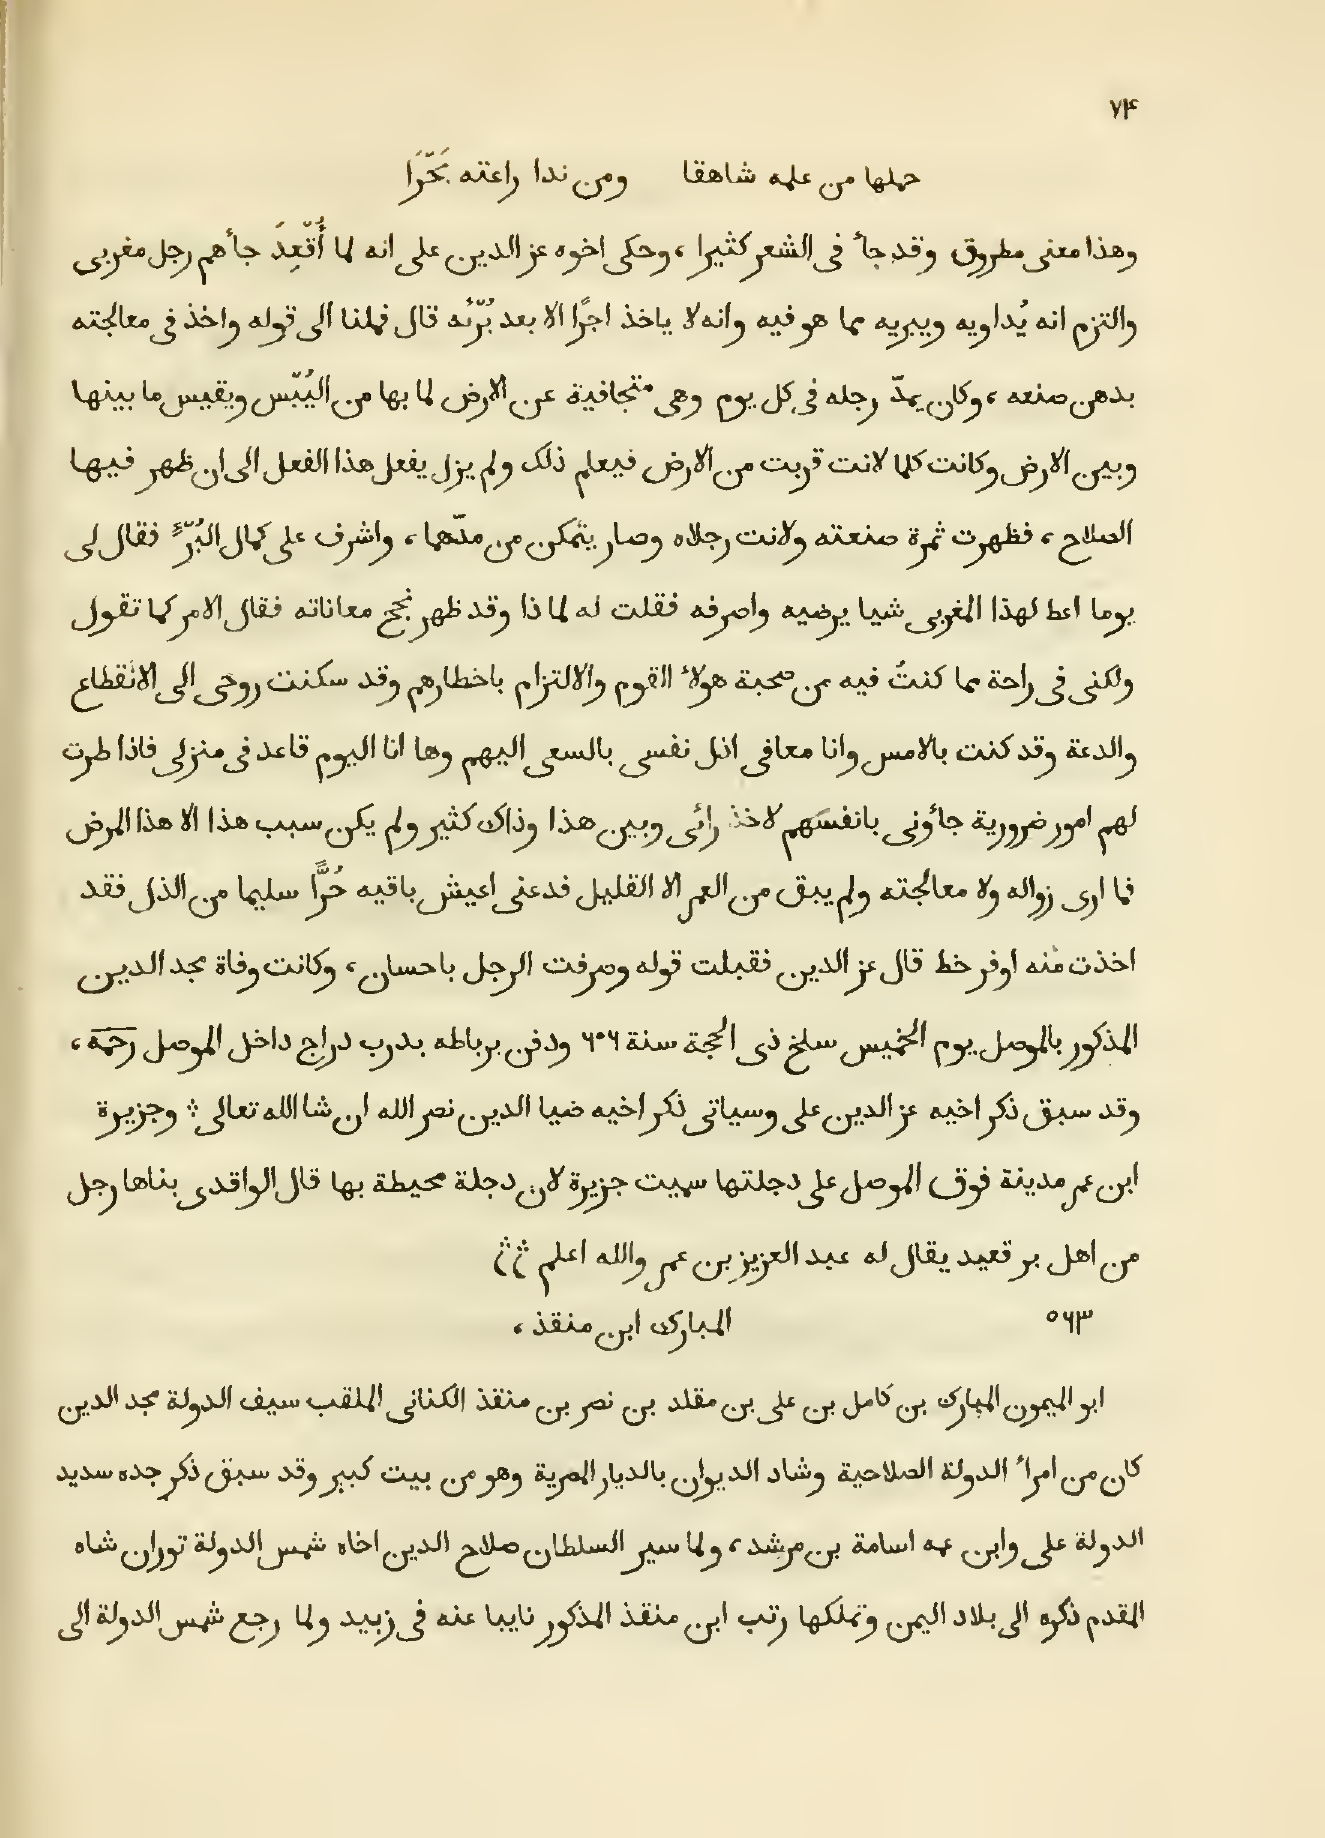 ٧٤
حملها من علمه شاهقا ومن ندا راعته بَحْرَا
وهذا معنى مطروق وقد جآ فى الشعر كثيرا، وحكى اخوه عز الدين على انه لما أُقْعِدَ جأهم رجل مغربى
والتزم انه يُداويه ويبريه مما هو فيه وانه لا ياخذ اجرًا الا بعد بُرْئه قال فملنا الى قوله واخذ فى معالجته
بدهن صنعه، وكان يمدّ رجله فى كل يوم وهى متجافية عن الارض لما بها من اليُبْس ويقيس ما بينها
وبين الارض وكانت كلما لانت قربت من الارض فيعلم ذلك ولم يزل يفعل هذا الفعل الى ان ظهر فيها
الصلاح، فظهرت ثمرة صنعته ولانت رجلاه وصار يتمكن من مدّهما، واشرف على كمال البُرْءِ فقال لى
يوما اعط لهذا المغربى شيا يرضيه واصرفه فقلت له لما ذا وقد ظهر نجح معاناته فقال الامر كما تقول
ولكنى فى راحة مما كنتُ فيه من صحبة هولأ القوم والالتزام باخطارهم وقد سكنت روحى الى الانقطاع
والدعة وقد كنت بالامس وانا معافى اذل نفسى بالسعى اليهم وها انا اليوم قاعد فى منزلى فاذا طرت
لهم امور ضرورية جأونى بانفسهم لاخذ رائى وبين هذا وذاك كثير ولم يكن سبب هذا الا هذا المرض
فما ارى زواله ولا معالجته ولم يبق من العمر الا القليل فدعنى اعيش باقيه حُرًّا سليما من الذل فقد
اخذت منه اوفر خط قال عز الدين فقبلت قوله وصرفت الرجل باحسان، وكانت وفاة مجد الدين
المذكور بالموصل يوم الخميس سلخ ذى الحجة سنة ٦٠٦ ودفن برباطه بدرب دراج داخل الموصل رحمَه،
وقد سبق ذكر اخيه عز الدين على وسياتى ذكر اخيه ضيا الدين نصر الله ان شا الله تعالى ؞ وجزيرة
ابن عمر مدينة فوق الموصل على دجلتها سميت جزيرة لان دجلة محيطة بها قال الواقدى بناها رجل
من اهل برقعيد يقال له عبد العزيز بن عمر والله اعلم
٥٦٣ المبارك ابن منقذ،
ابو الميمون المبارك بن كامل بن على بن مقلد بن نصر بن منقذ الكنانى الملقب سيف الدولة مجد الدين
كان من امرأ الدولة الصلاحية وشاد الديوان بالديار المصرية وهو من بيت كبير وقد سبق ذكر جده سديد
الدولة على وابن عمه اسامة بن مرشد، ولما سير السلطان صلاح الدين اخاه شمس الدولة توران شاه
المقدم ذكره الى بلاد اليمن وتملكها رتب ابن منقذ المذكور نايبا عنه فى زبيد ولما رجع شمس الدولة الى